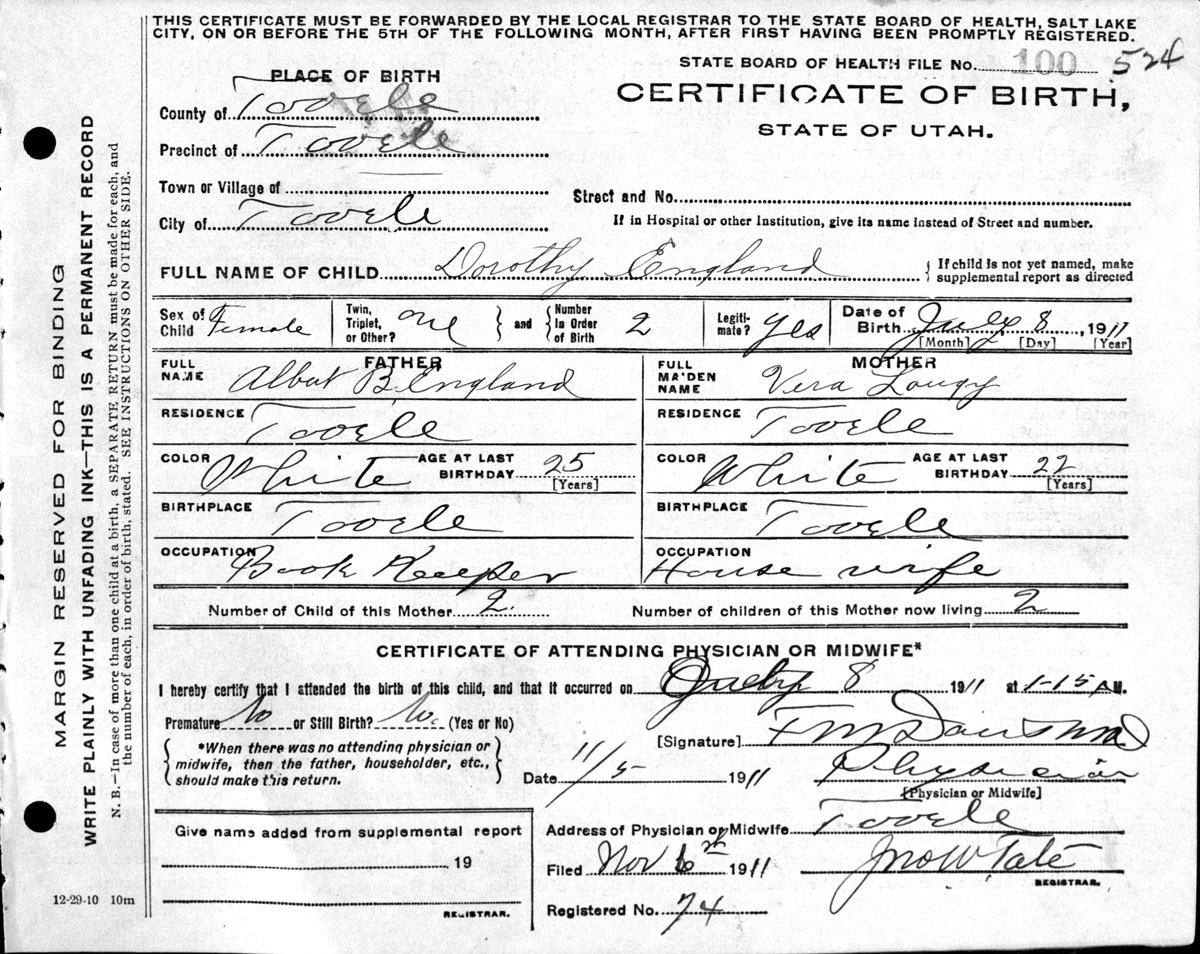 THIS CERTIFICATE MUST BE FORWARDED BY THE LOCAL REGISTRAR TO THE STATE BOARD OF HEALTH, SALT LAKE
CITY, ON OR BEFORE THE 5TH OF THE FOLLOWING MONTH, AFTER FIRST HAVING BEEN PROMPTLY REGISTERED.
STATE BOARD OF HEALTH FILE No. 100 524
PLACE OF BIRTH
CERTIFICATE OF BIRTH,
STATE OF UTAH.
County of Tooele
Precinct of Tooele
Town or Village of
Street and No.
City of Tooele
If in Hospital or other Institution, give its name instead of Street and number.
FULL NAME OF CHILD Dorothy England { If child is not yet named, make
supplemental report as directed
Sex of Child Female Twin, Triplet, or Other? one } and { Number in Order of Birth 2 Legitimate? Yes Date of Birth July 8, 1911
[Month] [Day] [Year]
FATHER MOTHER
FULL NAME Albert B. England FULL MAIDEN NAME Vera
RESIDENCE Tooele RESIDENCE Tooele
COLOR White AGE AT LAST BIRTHDAY 25 [Years] COLOR White AGE AT LAST BIRTHDAY 22 [Years]
BIRTHPLACE Tooele BIRTHPLACE Tooele
OCCUPATION Book Keeper OCCUPATION House wife
Number of Child of this Mother 2. Number of children of this Mother now living 2
CERTIFICATE OF ATTENDING PHYSICIAN OR MIDWIFE*
I hereby certify that I attended the birth of this child, and that it occurred on July 8 1911 at 1-15 A.M.
Premature No or Still Birth? No. (Yes or No)
{ *When there was no attending physician or
midwife, then the father, householder, etc.,
should make this return. }
[Signature] F M Davis M.D.
Date 11/5 1911 Physician
[Physician or Midwife]
Give name added from supplemental report
19
REGISTRAR.
Address of Physician or Midwife Tooele
Filed Nov 6 1911 Jno W Tate
REGISTRAR.
Registered No. 74
12-29-10 10m
MARGIN RESERVED FOR BINDING
WRITE PLAINLY WITH UNFADING INK—THIS IS A PERMANENT RECORD
N. B.—In case of more than one child at a birth, a SEPARATE RETURN must be made for each, and
the number of each, in order of birth, stated. SEE INSTRUCTIONS ON OTHER SIDE.